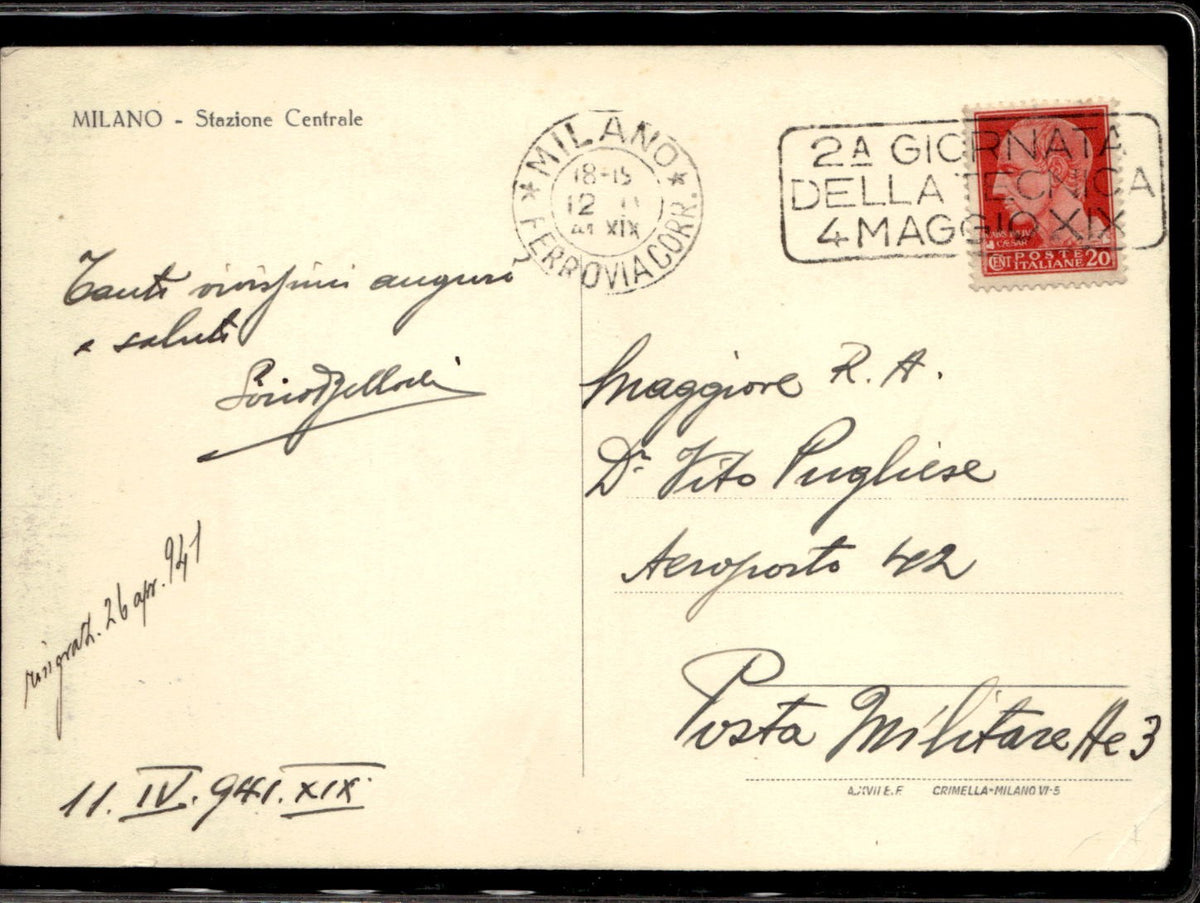 MILANO - Stazione Centrale
MILANO
18-15
12
41 XIX
FERROVIA CORR.
2A GIORNATA
DELLA TECNICA
4 MAGGIO XIX
CAESAR
CENT POSTE ITALIANE 20
Tanti vivissimi auguri
e saluti
Maggiore R. A.
Dr. Vito Pugliese
Aeroporto 42
Posta Militare 3
ringraz. 26 apr. 941
11. IV. 941. XIX
A.XVII E.F. CRIMELLA-MILANO VI-5